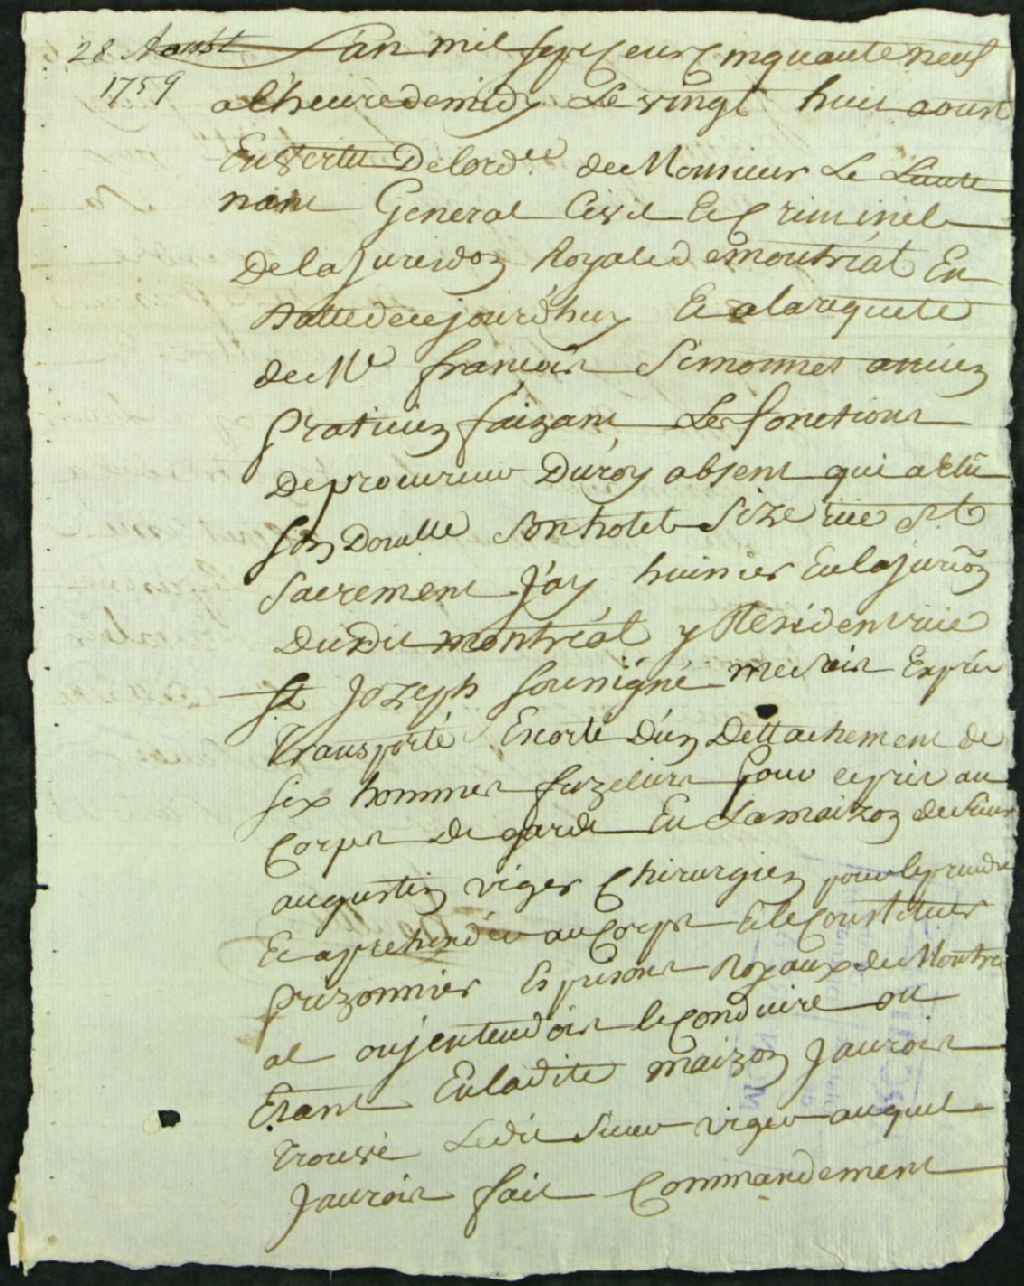 28 Aoust
1759
L'an mil sept Cent Cinquante neuf
a l'heure de midy Le vingt huit aoust
En Vertu De lordce de Monsieur Le Lieute
nant General Civil Et Criminel
De la Juridon Royale de montréal En
datte de ce jourd'huy Et a la requete
de Me françois Simonnet ancien
praticien faizant Les fonctions
De procureur Du roy absent qui a Elu
son Domlle son hotel Size rue St
Sacrement J'ay huissier En la Juriôn
Du dit montréal y Résident rue
St Jozeph soussigné me suis Exprès
Transporté Escorté D'un Dettachement de
six hommes fuzeliers pour ce pris au
Corps de garde En La maizon de Sieur
augustin viger Chirurgien pour le prendre
Et aprehender au Corps Et le Constituer
prizonnier Es prisons Royaux de Montré
al ou jentendois le Conduire ou
Etant En la dite maizon Jaurois
Trouvé Ledit Sieur viger auquel
Jaurois fait Commandement